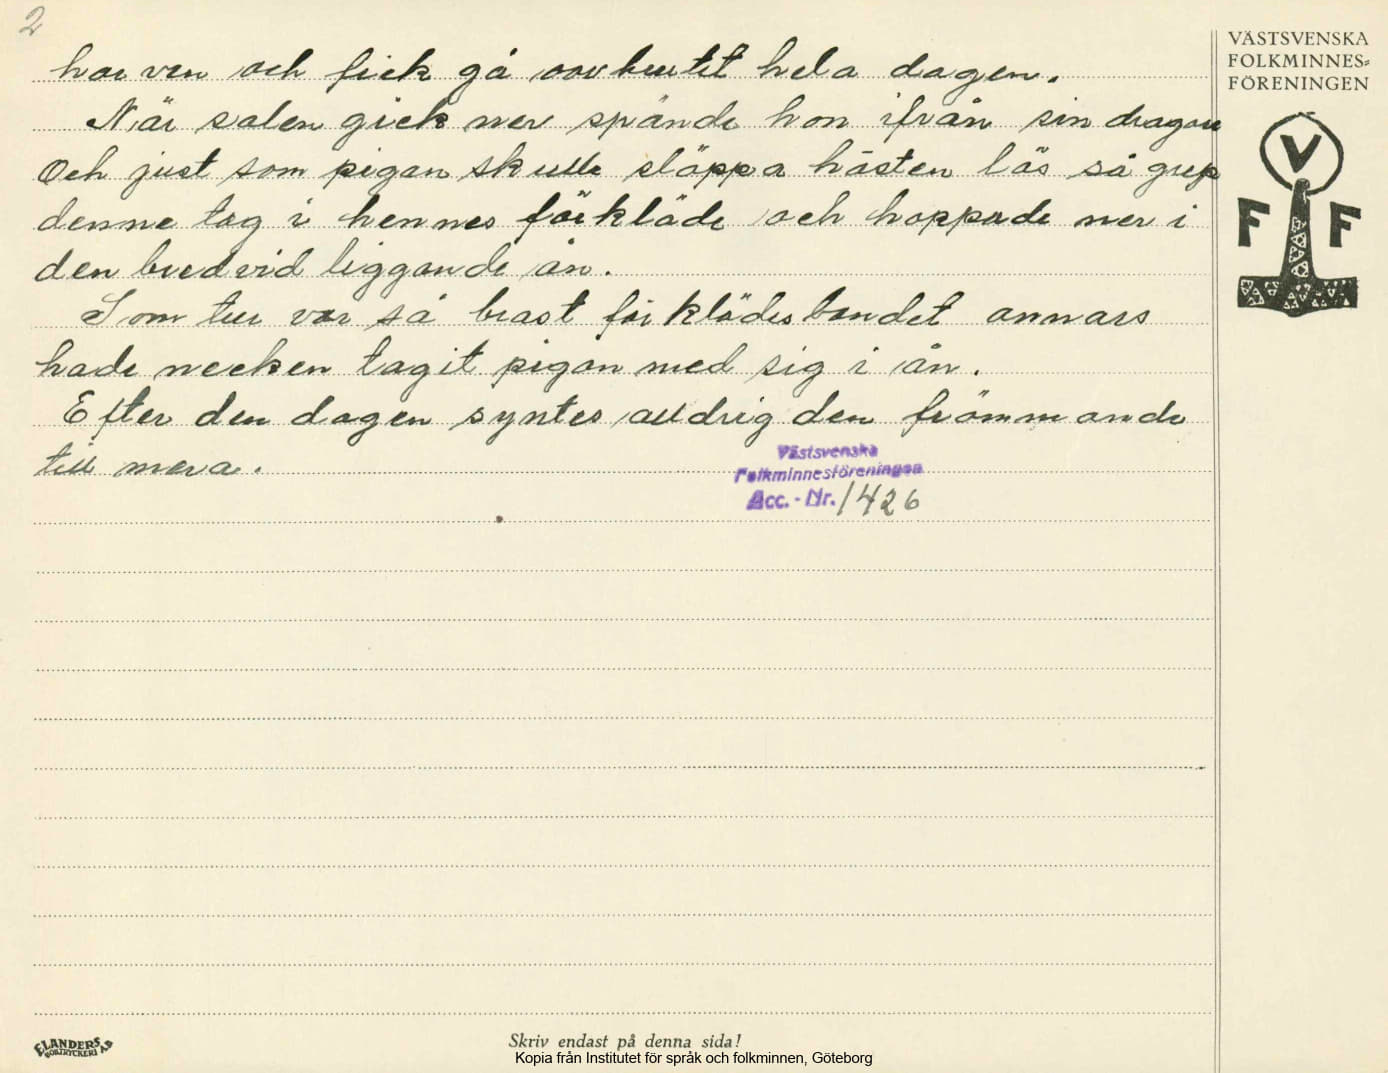 2
harven och fick gå oavbrutet hela dagen.
När solen gick ner spände hon ifrån sin dragare
Och just som pigan skulle släppa hästen lös så grep
denne tag i hennes förkläde och hoppade ner i
den bredvid liggande ån.
Som tur var så brast förklädesbandet annars
hade necken tagit pigan med sig i ån.
Efter den dagen syntes alldrig den främmande
till mera.
Västsvenska
Folkminnesföreningen
Acc. - Nr. 1426
VÄSTSVENSKA
FOLKMINNES-
FÖRENINGEN
V
F F
ELANDERS
BOKTRYCKERI AB
Skriv endast på denna sida!
Kopia från Institutet för språk och folkminnen, Göteborg